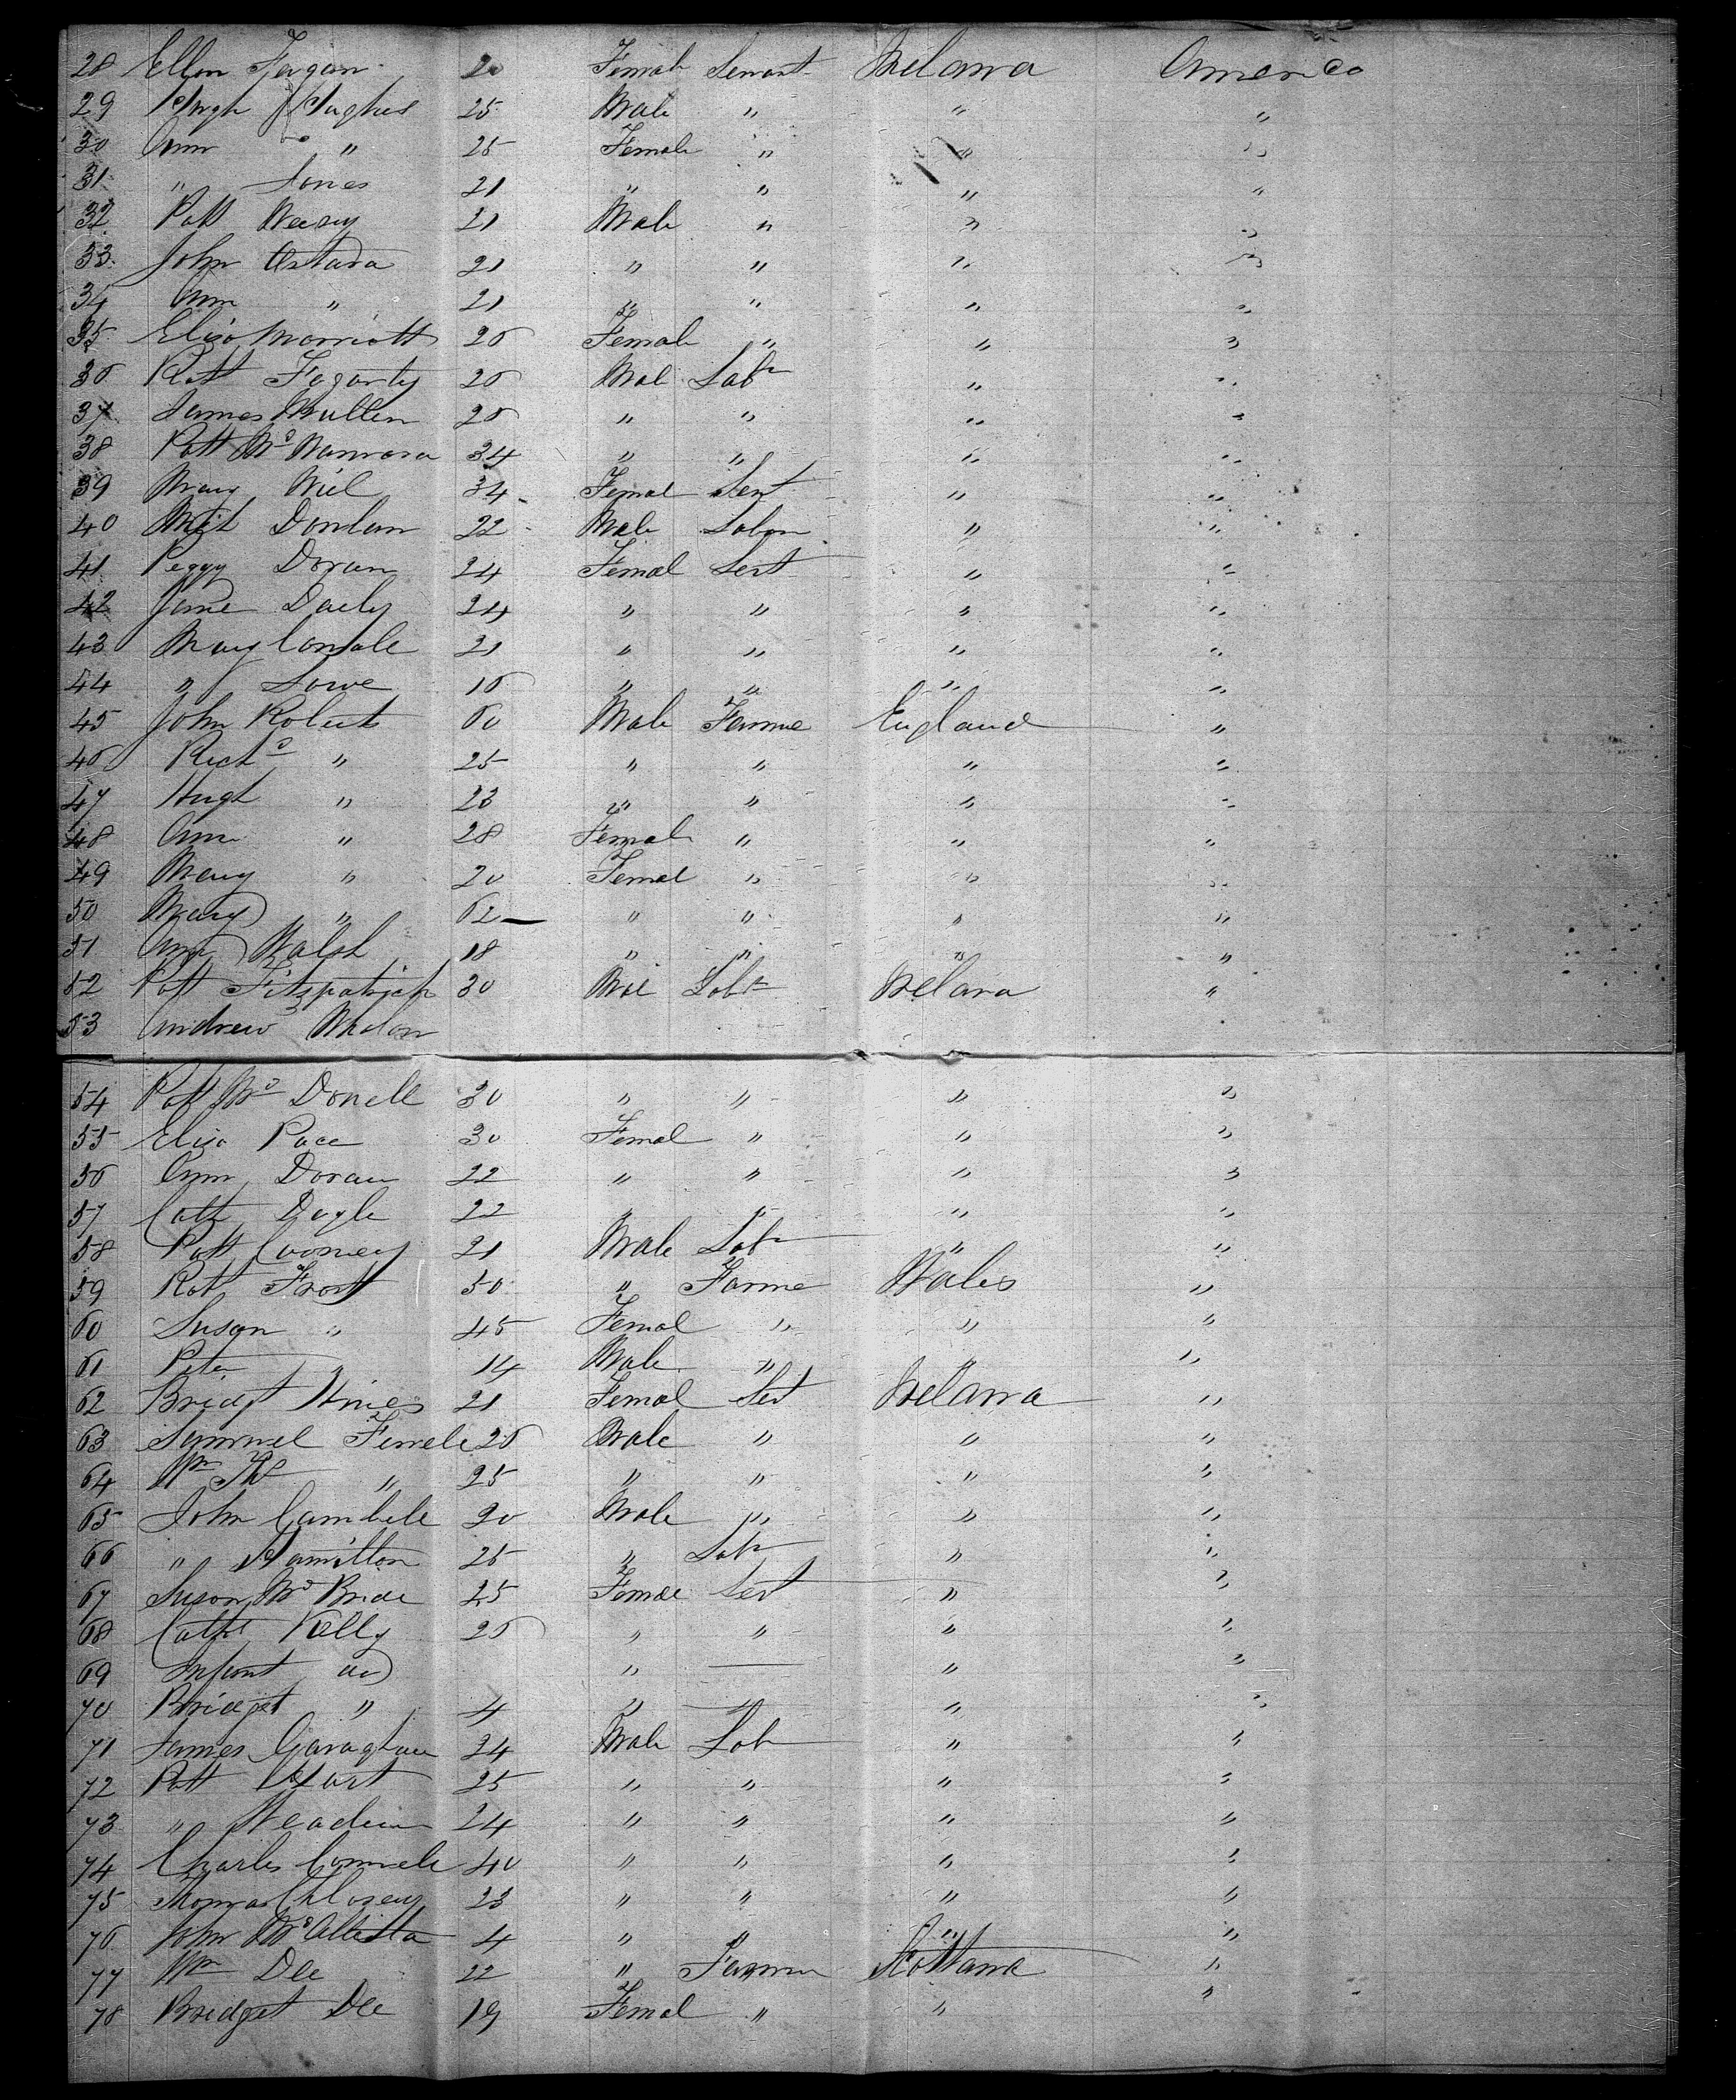 28 Ellen Fagan 20 Female Servant Ireland America
29 Hugh Hughes 25 Male " " "
30 Ann " 25 Female " " "
31 " Jones 21 " " " "
32 Patt 21 Male " " "
33 John 21 " " " "
34 Ann " 21 " " " "
35 Eliza Marriott 26 Female " " "
36 Fogarty 26 Mal Labr " "
37 James Mullen 26 " " " "
38 Patt Mc Namara 34 " " " "
39 Mary 34 Femal Sert " "
40 Donlan 22 Male Labor " "
41 Peggy Doran 24 Femal Sert " "
42 Jane Daely 24 " " " "
43 Mary 21 " " " "
44 " Lowe 16 " " " "
45 John Roberts 60 Male Farme England "
46 Richd " 25 " " " "
47 Hugh " 23 " " " "
48 Ann " 28 Female " " "
49 Mary " 20 Femal " " "
50 Mary " 62 " " " "
51 Ann Walsh 18 " " " "
52 Patt Fitzpatrick 30 Mal Labr Ireland "
53 Andrew Whalon
54 Patt Mc Donell 30 " " " "
55 Eliza Pace 30 Femal " " "
56 Ann Doran 22 " " " "
57 Cath Dogle 22 " " " "
58 Patt Cooney 21 Male Labr " "
59 Robt Frost 50 " Farme Wales "
60 Susan " 45 Femal " " "
61 Peter 14 Male " " "
62 Bridgt Hines 21 Femal Sert Ireland "
63 Samuel 26 Male " " "
64 Wm " 25 " " " "
65 John Cambele 20 Male " " "
66 " Hamilton 25 " Labr " "
67 Susan Mc Bride 25 Femal Sert " "
68 Cathe Kelly 26 " " " "
69 Infant do " — " "
70 Bridget " 4 " — " "
71 James Garaghan 24 Male Labr " "
72 Patt Hart 25 " " " "
73 " 24 " " " "
74 Charles 40 " " " "
75 Thomas 23 " " " "
76 John Mc 4 " " " "
77 Wm Dee 22 " Farmer Scotland "
78 Bridget Dee 19 Femal " " "